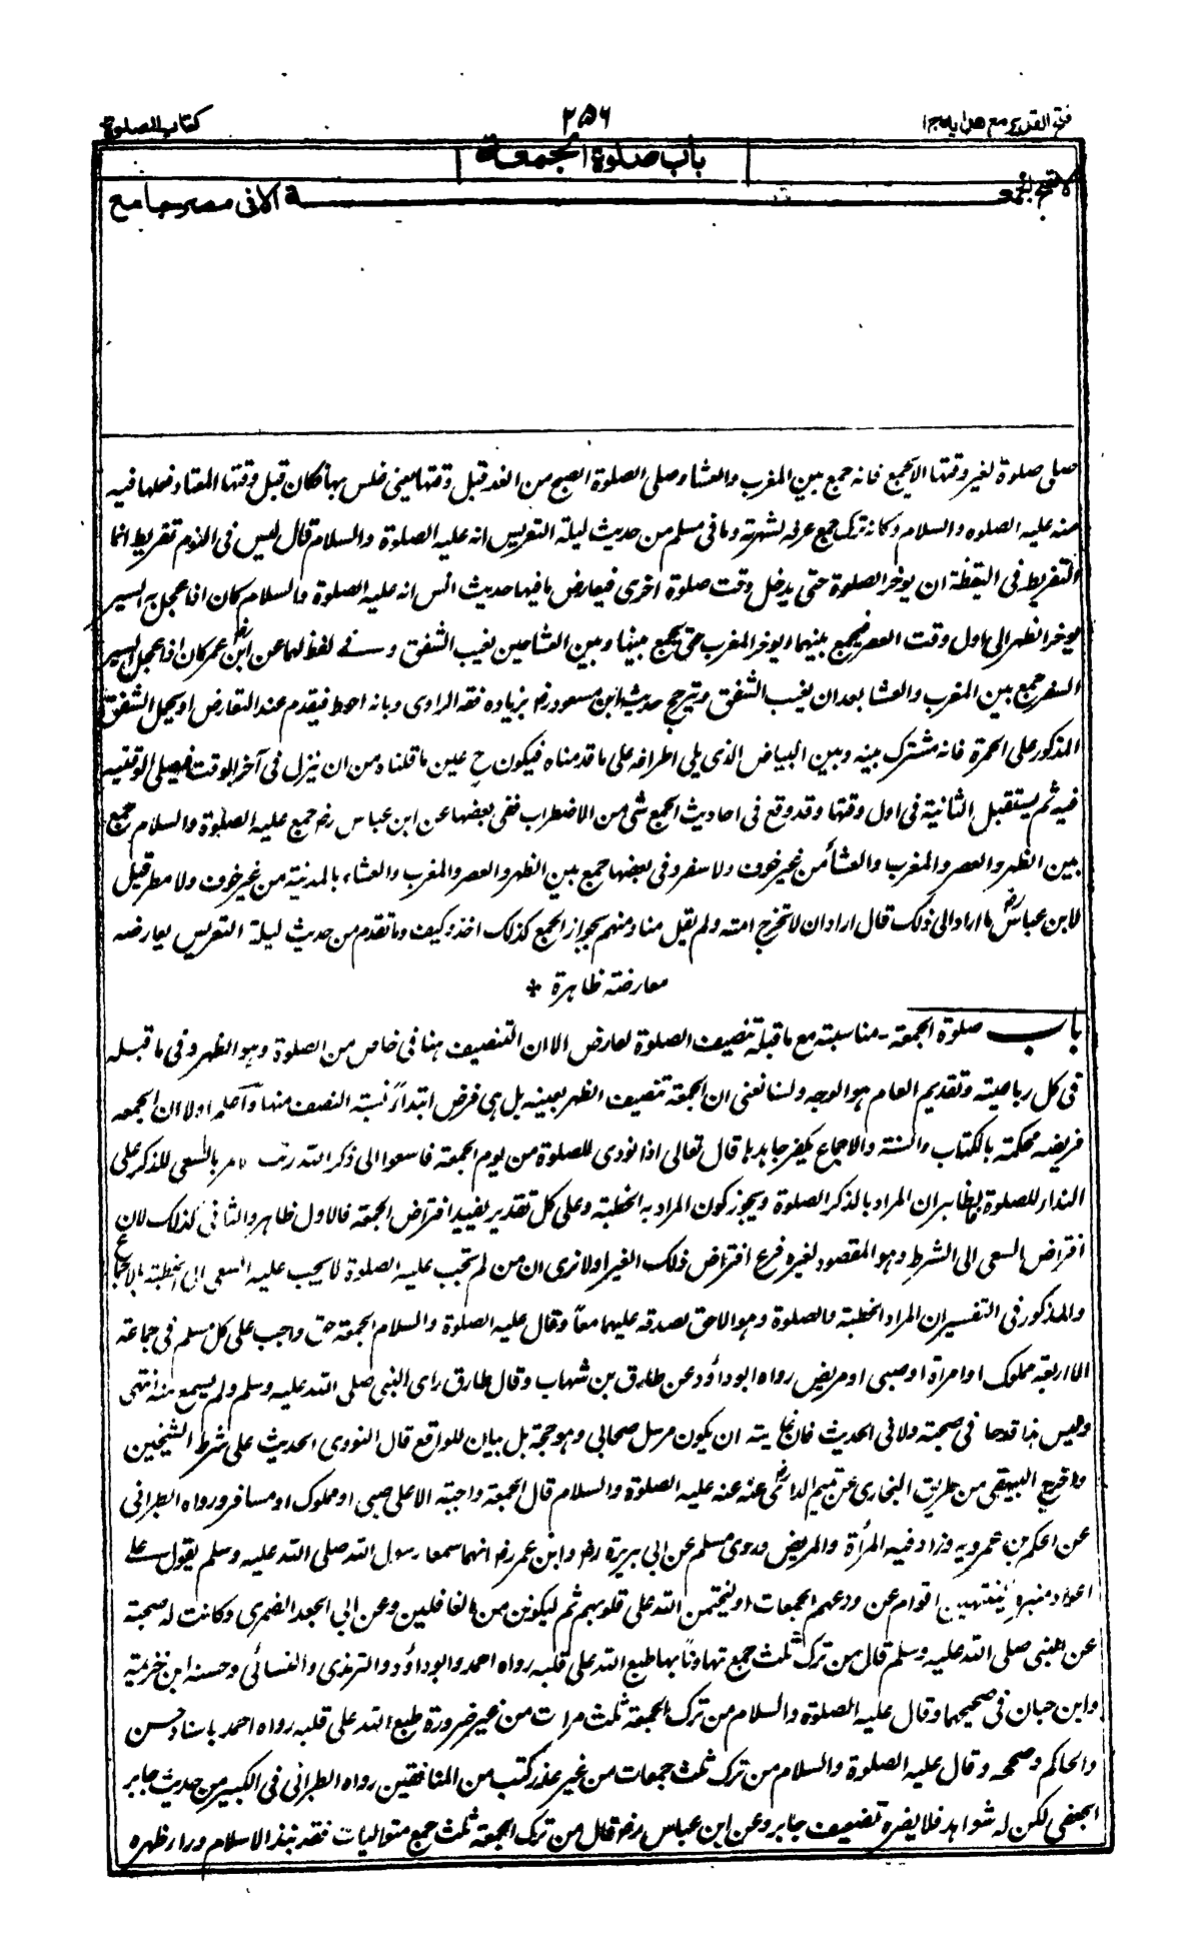 فتح القدير مع هدايه ج۱
۲۵۶
كتاب الصلوة
باب صلوة الجمعة
لا تصح الجمعة الا فى مصر جامع
صلى صلوة لغير وقتها الا بجمع فانه جمع بين المغرب والعشا وصلى الصلوة الصبح من الغد قبل وقتها يعنى غلس بها فكان قبل وقتها المعتاد فعلها فيه
منه عليه الصلوه والسلام وكانه ترك جمع عرفه لشهرته وما فى مسلم من حديث ليلة التعريس انه عليه الصلوة والسلام قال ليس فى النوم تفريط انما
التفريط فى اليقظة ان يوخر الصلوة حتى يدخل وقت صلوة اخرى فيعارض ما فيها حديث انس انه عليه الصلوة والسلام كان اذا عجل به السير
يوخر الظهر الى اول وقت العصر فيجمع بينهما ويوخر المغرب حتى يجمع بينها وبين العشا حين يغيب الشفق وفى لفظ لهما عن ابن عمر كان اذا عجل به السير
السفر جمع بين المغرب والعشا بعد ان يغيب الشفق ويترجح حديث ابن مسعود رض بزيادة فقه الراوى وبانه احوط فيقدم عند التعارض او يحمل الشفق
المذكور على الحمرة فانه مشترك بينه وبين البياض الذى يلى اطرافه على ما قدمناه فيكون ح عين ما قلناه من ان ينزل فى آخر الوقت فيصلى الوقتيه
فيه ثم يستقبل الثانية فى اول وقتها وقد وقع فى احاديث الجمع شى من الاضطراب ففى بعضها عن ابن عباس رض جمع عليه الصلوة والسلام جمع
بين الظهر والعصر والمغرب والعشا من غير خوف ولا سفر وفى بعضها جمع بين الظهر والعصر والمغرب والعشاء بالمدينة من غير خوف ولا مطر قيل
لابن عباس رض ما اراد الى ذلك قال اراد ان لا تحرج امته ولم يقل منا ومنهم بجواز الجمع كذلك احد وكيف وما تقدم من حديث ليلة التعريس يعارضه
معارضته ظاهرة *
باب صلوة الجمعة - مناسبته مع ما قبله تنصيف الصلوة لعارض الا ان التنصيف هنا فى خاص من الصلوة وهو الظهر وفى ما قبله
فى كل رباعيته وتقديم العام هو الوجه ولسنا نعنى ان الجمعة تنصيف الظهر بعينه بل هى فرض ابتداءً نسبته النصف منها واعلم اولا ان الجمعه
فريضه محكمة بالكتاب والسنة والاجماع يكفر جاحدها قال تعالى اذا نودى للصلوة من يوم الجمعة فاسعوا الى ذكر الله رتب الامر بالسعى للذكر على
النداء للصلوة فالظاهر ان المراد بالذكر الصلوة ويجوز كون المراد به الخطبة وعلى كل تقدير يفيد افتراض الجمعة فالاول ظاهر والثانى كذلك لان
افتراض السعى الى الشرط وهو المقصود لغيره فرع افتراض ذلك الغير اولا نرى ان من لم تجب عليه الصلوة لا يجب عليه السعى الى الخطبة بالاجماع
والمذكور فى التفسير ان المراد الخطبة والصلوة وهو الاحق لصدقه عليهما معا وقال عليه الصلوة والسلام الجمعة حق واجب على كل مسلم فى جماعة
الا اربعة مملوك او امرأة او صبى او مريض رواه ابو داؤد عن طارق بن شهاب وقال طارق راى النبى صلى الله عليه وسلم ولم يسمع منه انتهى
وليس هذا قدحا فى صحبته ولا فى الحديث فان غايته ان يكون مرسل صحابى وهو حجة بل بيان للواقع قال النووى الحديث على شرط الشيخين
واخرج البيهقى من طريق البخارى عن تميم الدارى رض عنه عليه الصلوة والسلام قال الجمعة واجبة الا على صبى او مملوك او مسافر ورواه الطبرانى
عن الحكم بن عمرو به وزاد فيه المرأة والمريض وروى مسلم عن ابى هريرة رض وابن عمر رض انهما سمعا رسول الله صلى الله عليه وسلم يقول على
اعواد منبره لينتهين اقوام عن ودعهم الجمعات او ليختمن الله على قلوبهم ثم ليكونن من الغافلين وعن ابى الجعد الضمرى وكانت له صحبة
عن النبى صلى الله عليه وسلم قال من ترك ثلث جمع تهاونا بها طبع الله على قلبه رواه احمد وابو داؤد والترمذى والنسائى وحسنه ابن خزيمة
وابن حبان فى صحيحهما وقال عليه الصلوة والسلام من ترك الجمعة ثلث مرات من غير ضرورة طبع الله على قلبه رواه احمد باسناد حسن
والحاكم وصححه وقال عليه الصلوة والسلام من ترك ثلث جمعات من غير عذر كتب من المنافقين رواه الطبرانى فى الكبير من حديث جابر
الجعفى لكن له شواهد فلا يضره تضعيف جابر وعن ابن عباس رض قال من ترك الجمعة ثلث جمع متواليات فقد نبذ الاسلام وراء ظهره